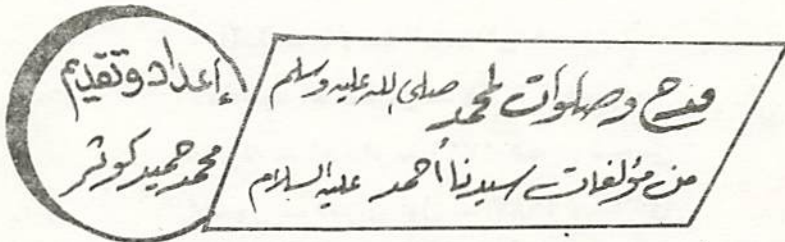 إعداد وتقديم
محمد حميد كوثر
مدح وصلوات لمحمد صلى الله عليه وسلم
من مؤلفات سيدنا أحمد عليه السلام